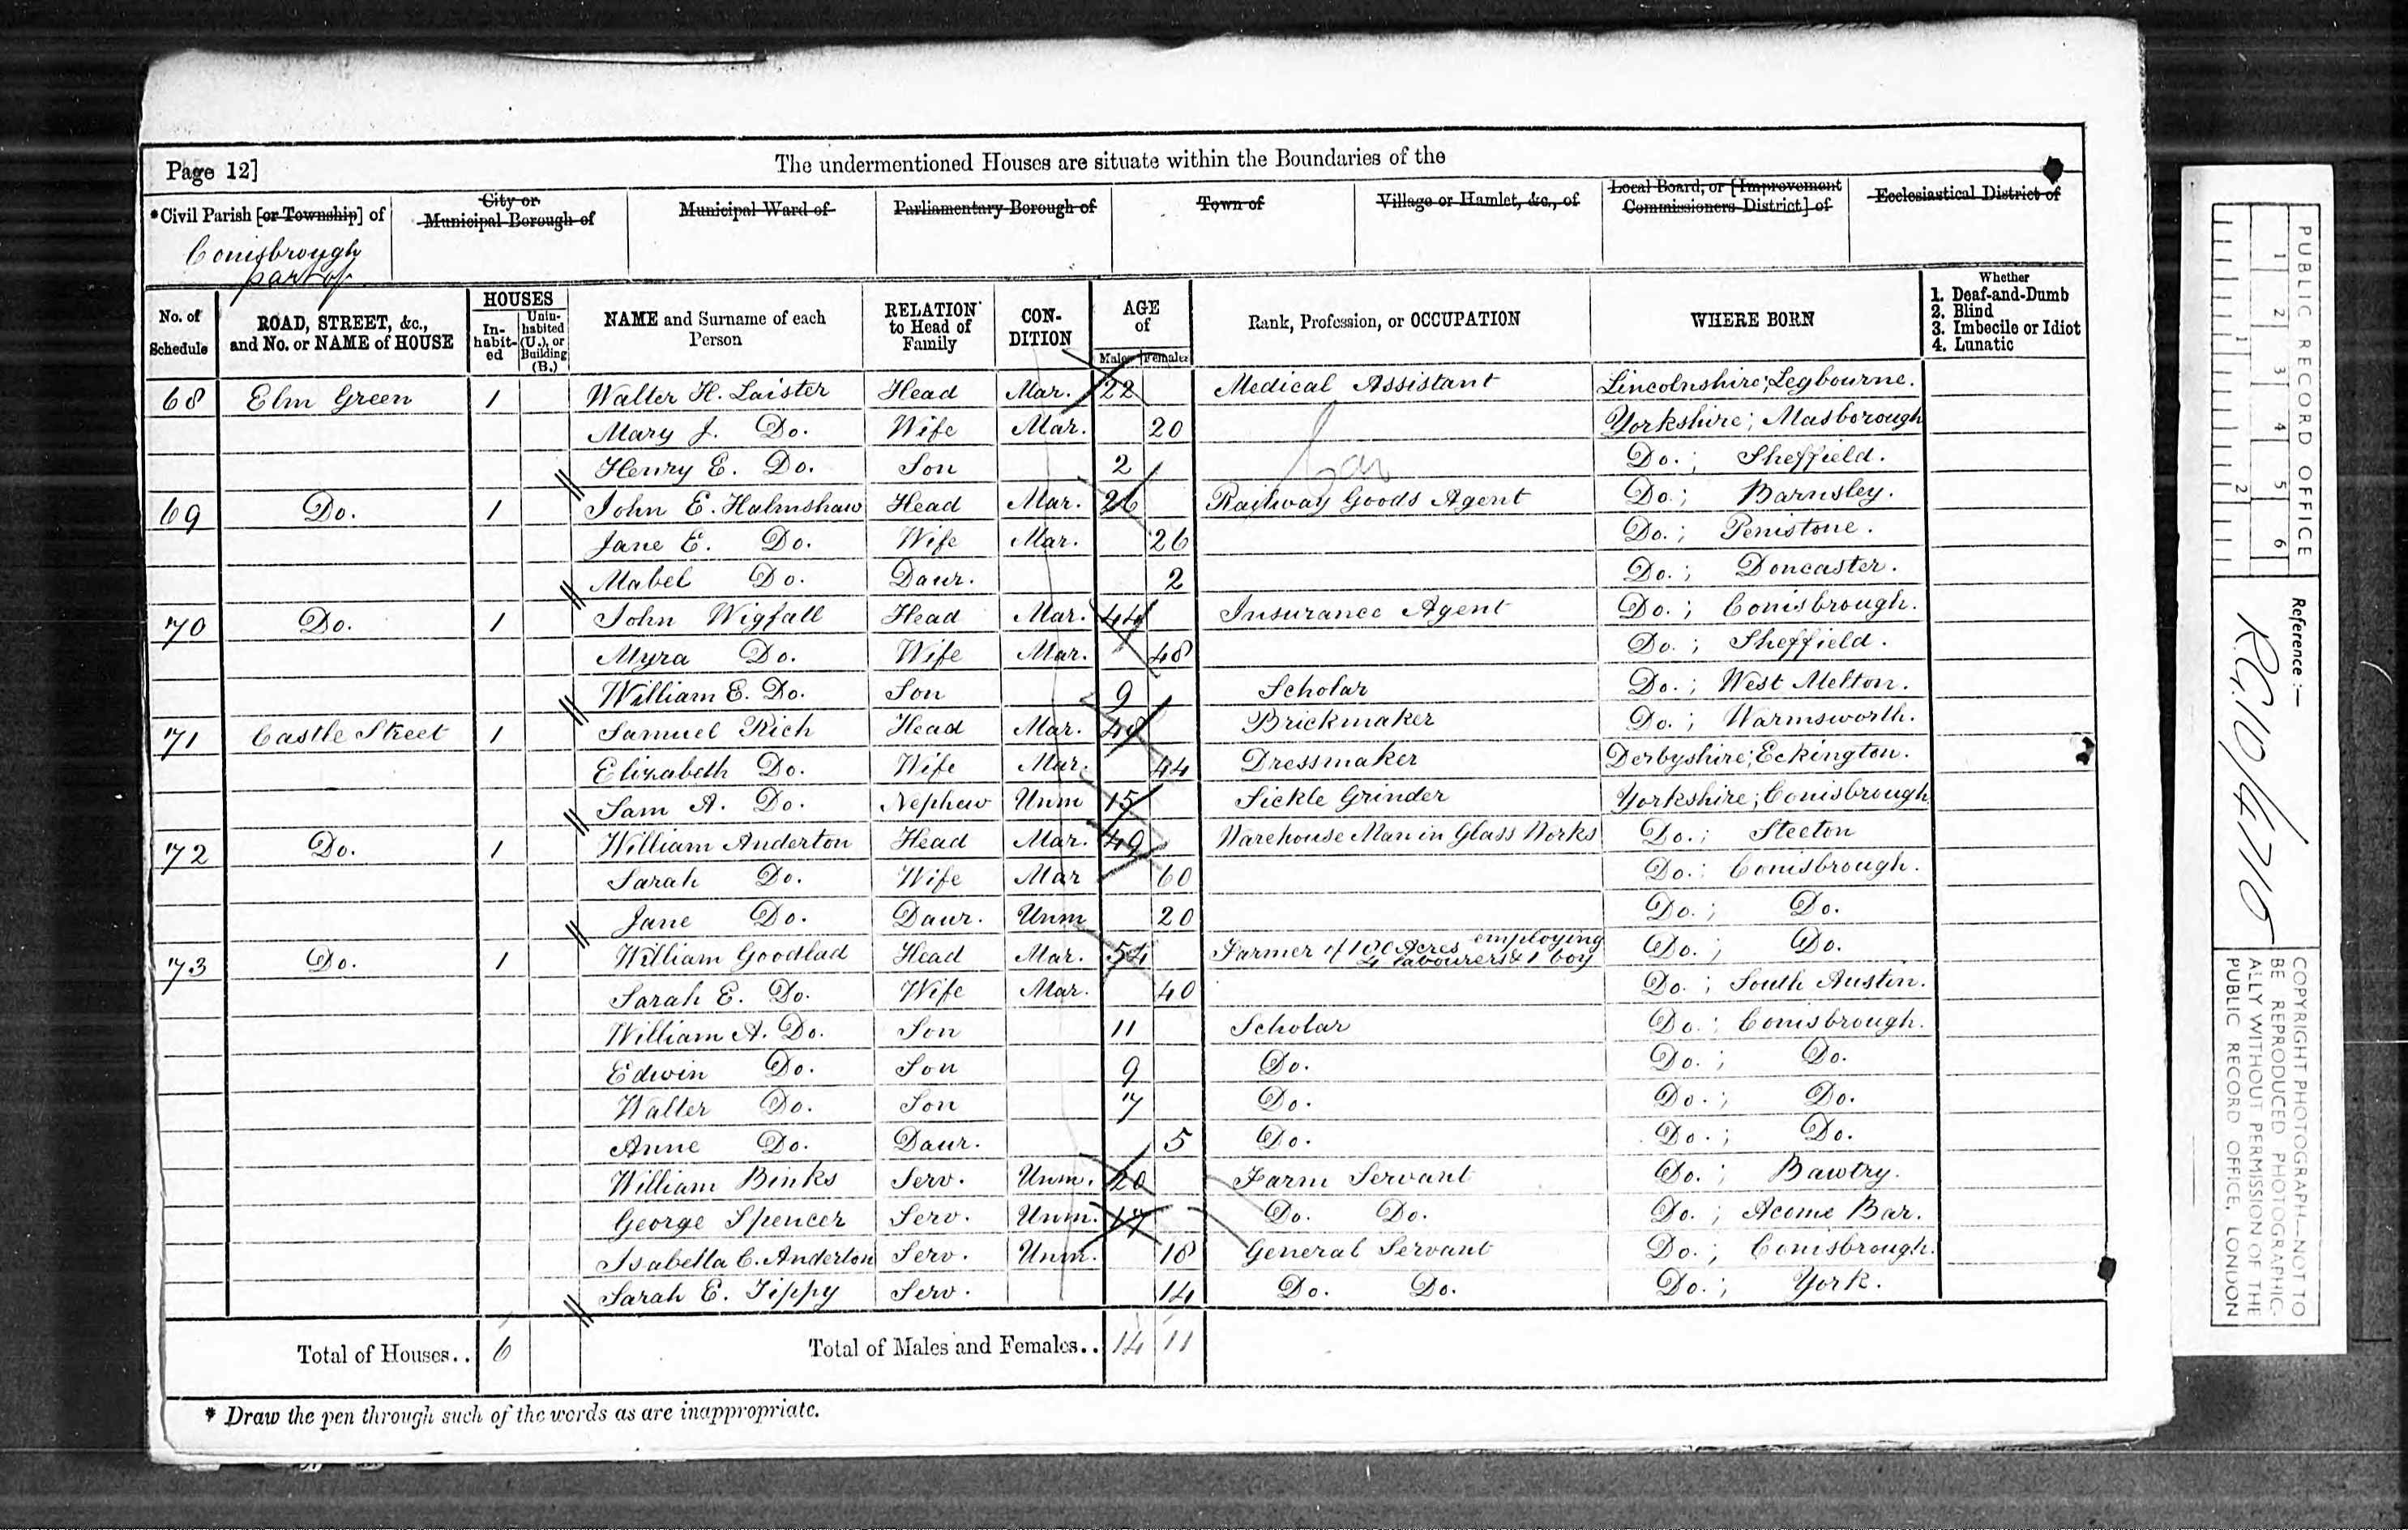 Page 12]
The undermentioned Houses are situate within the Boundaries of the
*Civil Parish [or Township] of
Conisbrough
part of
City or
Municipal Borough of
Municipal Ward of
Parliamentary Borough of
Town of
Village or Hamlet, &c., of
Local Board, or [Improvement
Commissioners District] of
Ecclesiastical District of
No. of
Schedule
ROAD, STREET, &c.,
and No. or NAME of HOUSE
HOUSES
In-
habit-
ed
Unin-
habited
(U.), or
Building
(B.)
NAME and Surname of each
Person
RELATION
to Head of
Family
CON-
DITION
AGE
of
Males Females
Rank, Profession, or OCCUPATION
WHERE BORN
Whether
1. Deaf-and-Dumb
2. Blind
3. Imbecile or Idiot
4. Lunatic
68 Elm Green 1 Walter H. Laister Head Mar. 22 Medical Assistant Lincolnshire; Legbourne.
Mary J. Do. Wife Mar. 20 Yorkshire; Masborough
Henry E. Do. Son 2 Do.; Sheffield.
69 Do. 1 John E. Halmshaw Head Mar. 26 Railway Goods Agent Do; Barnsley.
Jane E. Do. Wife Mar. 26 Do.; Penistone.
Mabel Do. Daur. 2 Do.; Doncaster.
70 Do. 1 John Wigfall Head Mar. 44 Insurance Agent Do.; Conisbrough.
Myra Do. Wife Mar. 48 Do.; Sheffield.
William E. Do. Son 9 Scholar Do.; West Melton.
71 Castle Street 1 Samuel Rich Head Mar. 48 Brickmaker Do.; Warmsworth.
Elizabeth Do. Wife Mar. 44 Dressmaker Derbyshire; Eckington.
Sam A. Do. Nephew Unm 15 Sickle Grinder Yorkshire; Conisbrough
72 Do. 1 William Anderton Head Mar. 49 Warehouse Man in Glass Works Do.; Steeton
Sarah Do. Wife Mar 60 Do.; Conisbrough.
Jane Do. Daur. Unm 20 Do.; Do.
73 Do. 1 William Goodlad Head Mar. 54 Farmer of 100 Acres employing
4 labourers & 1 boy Do.; Do.
Sarah E. Do. Wife Mar. 40 Do.; South Austin.
William A. Do. Son 11 Scholar Do.; Conisbrough.
Edwin Do. Son 9 Do. Do.; Do.
Walter Do. Son 7 Do. Do.; Do.
Anne Do. Daur. 5 Do. Do.; Do.
William Binks Serv. Unm. 20 Farm Servant Do.; Bawtry.
George Spencer Serv. Unm. 17 Do. Do. Do.; Acome Bar.
Isabella C. Anderton Serv. Unm. 18 General Servant Do.; Conisbrough.
Sarah E. Tippy Serv. 14 Do. Do. Do.; York.
Total of Houses.. 6 Total of Males and Females.. 14 11
* Draw the pen through such of the words as are inappropriate.
PUBLIC RECORD OFFICE
1 2 3 4 5 6
1 2
Reference :—
R.G. 10/4716
COPYRIGHT PHOTOGRAPH—NOT TO
BE REPRODUCED PHOTOGRAPHIC-
ALLY WITHOUT PERMISSION OF THE
PUBLIC RECORD OFFICE, LONDON